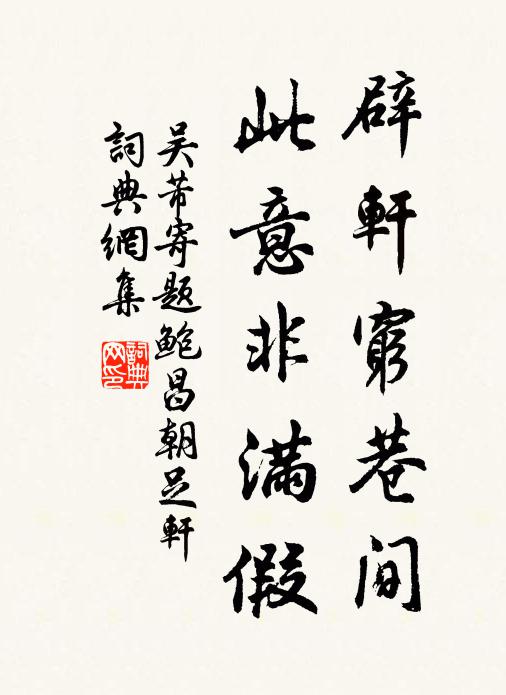 辟軒窮巷間
此意非滿假
吴芾寄題鮑昌朝足軒
詞典網集
詞典网印